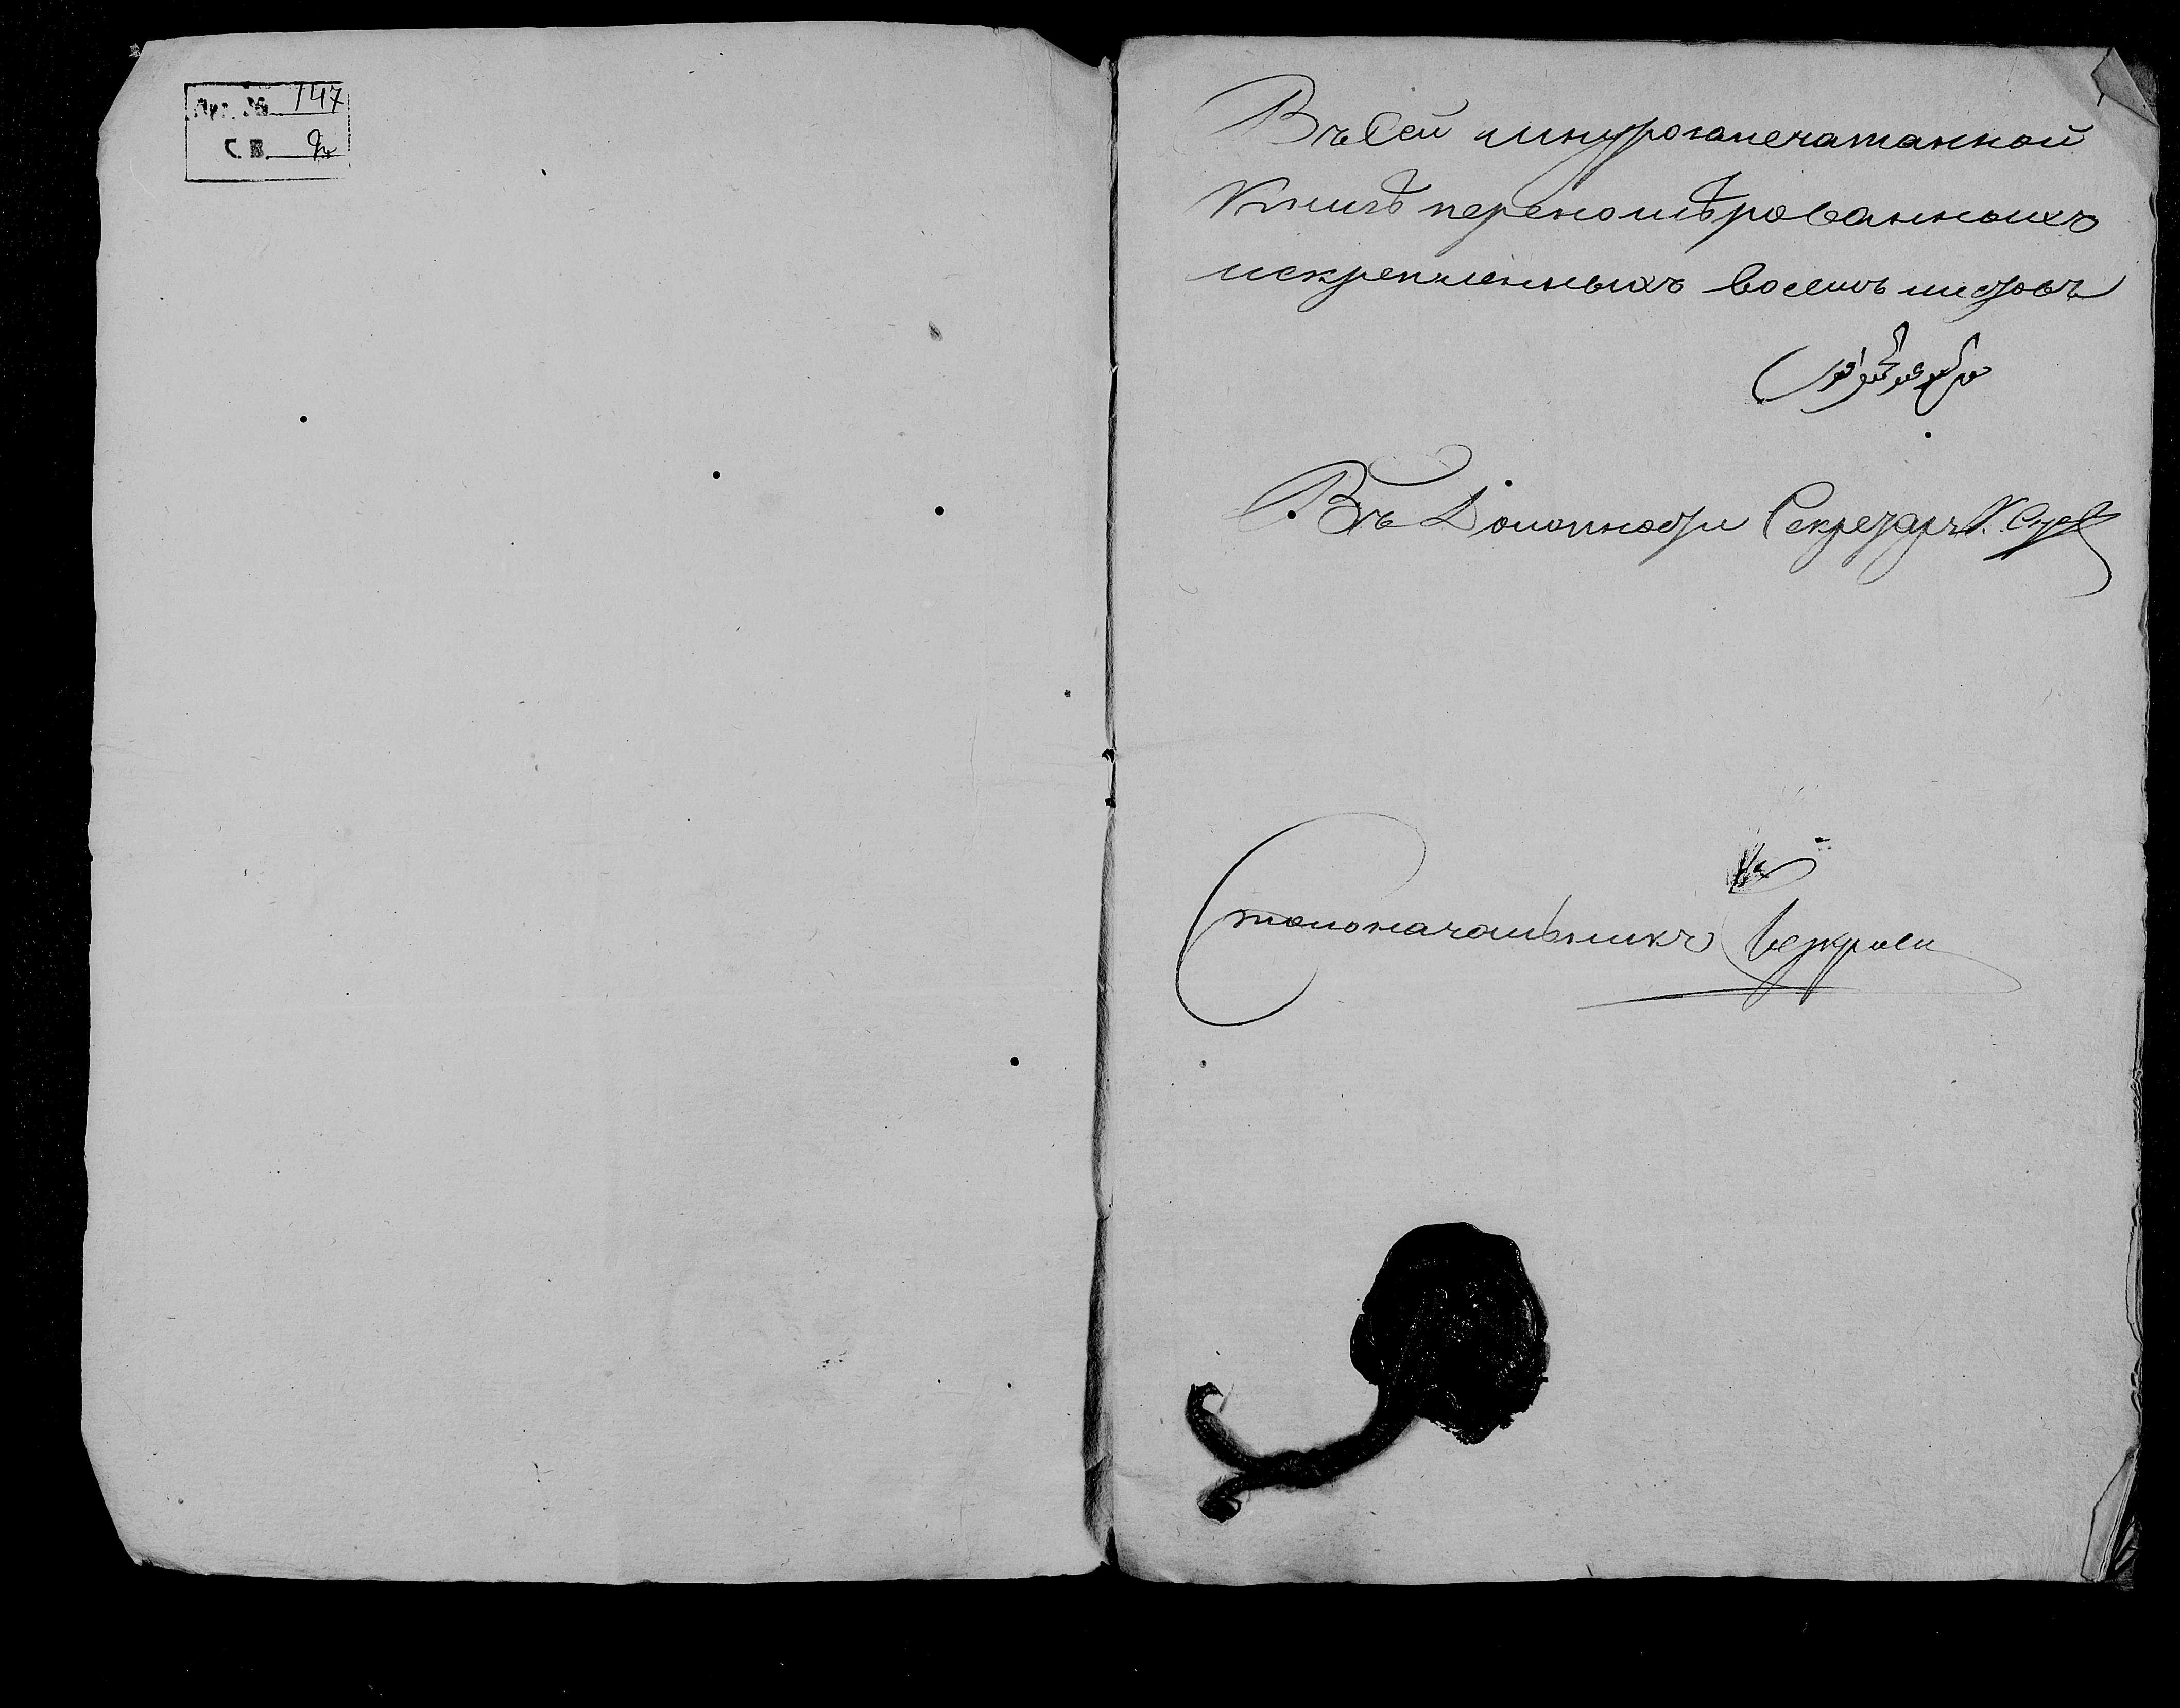 Арх. № 147
С. В.
Въ Сей шнурозапечатанной
Книгѣ переномѣрованныхъ
искрепленныхъ восемь листовъ
Въ Должности Секретарь
Столоначальникъ